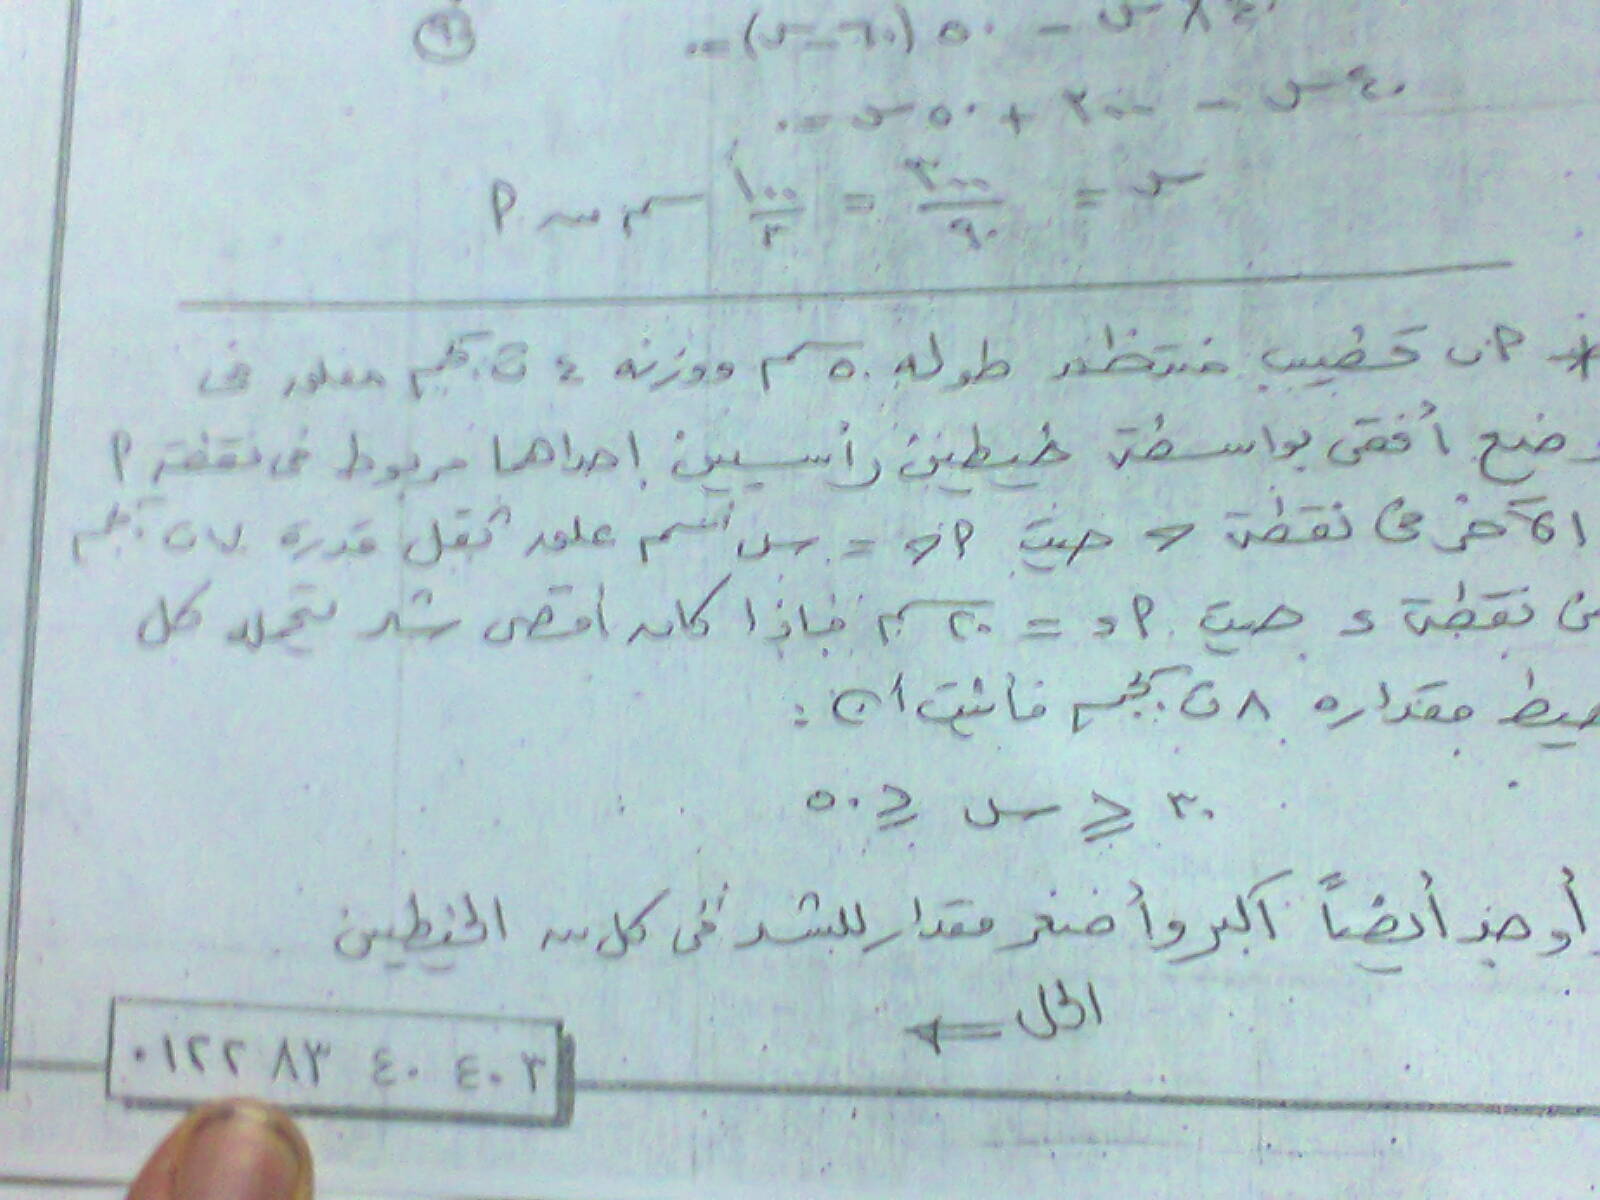 ٤٠ × س - ٥٠ (٦٠ - س) = ٠
٤٠ س - ٣٠٠٠ + ٥٠ س = ٠
س = ٣٠٠٠/٩٠ = ١٠٠/٣ سم من P
* P ب قضيب منتظم طوله ٥٠ سم ووزنه ٤ ث.كجم معلق فى
وضع أفقى بواسطة خيطين رأسيين إحداهما مربوط فى نقطة P
الآخر فى نقطة ج حيث P ج = س سم علق ثقل قدره ٧ ث كجم
من نقطة د حيث P د = ٢٠ سم فإذا كان أقصى شد يتحمله كل
خيط مقداره ٨ ث كجم فأثبت أن :
٣٠ ≤ س ≤ ٥٠
أوجد أيضاً أكبر وأصغر مقدار للشد فى كل من الخيطين
الحل ⇐
٠١٢٢ ٨٣ ٤٠ ٤٠٣